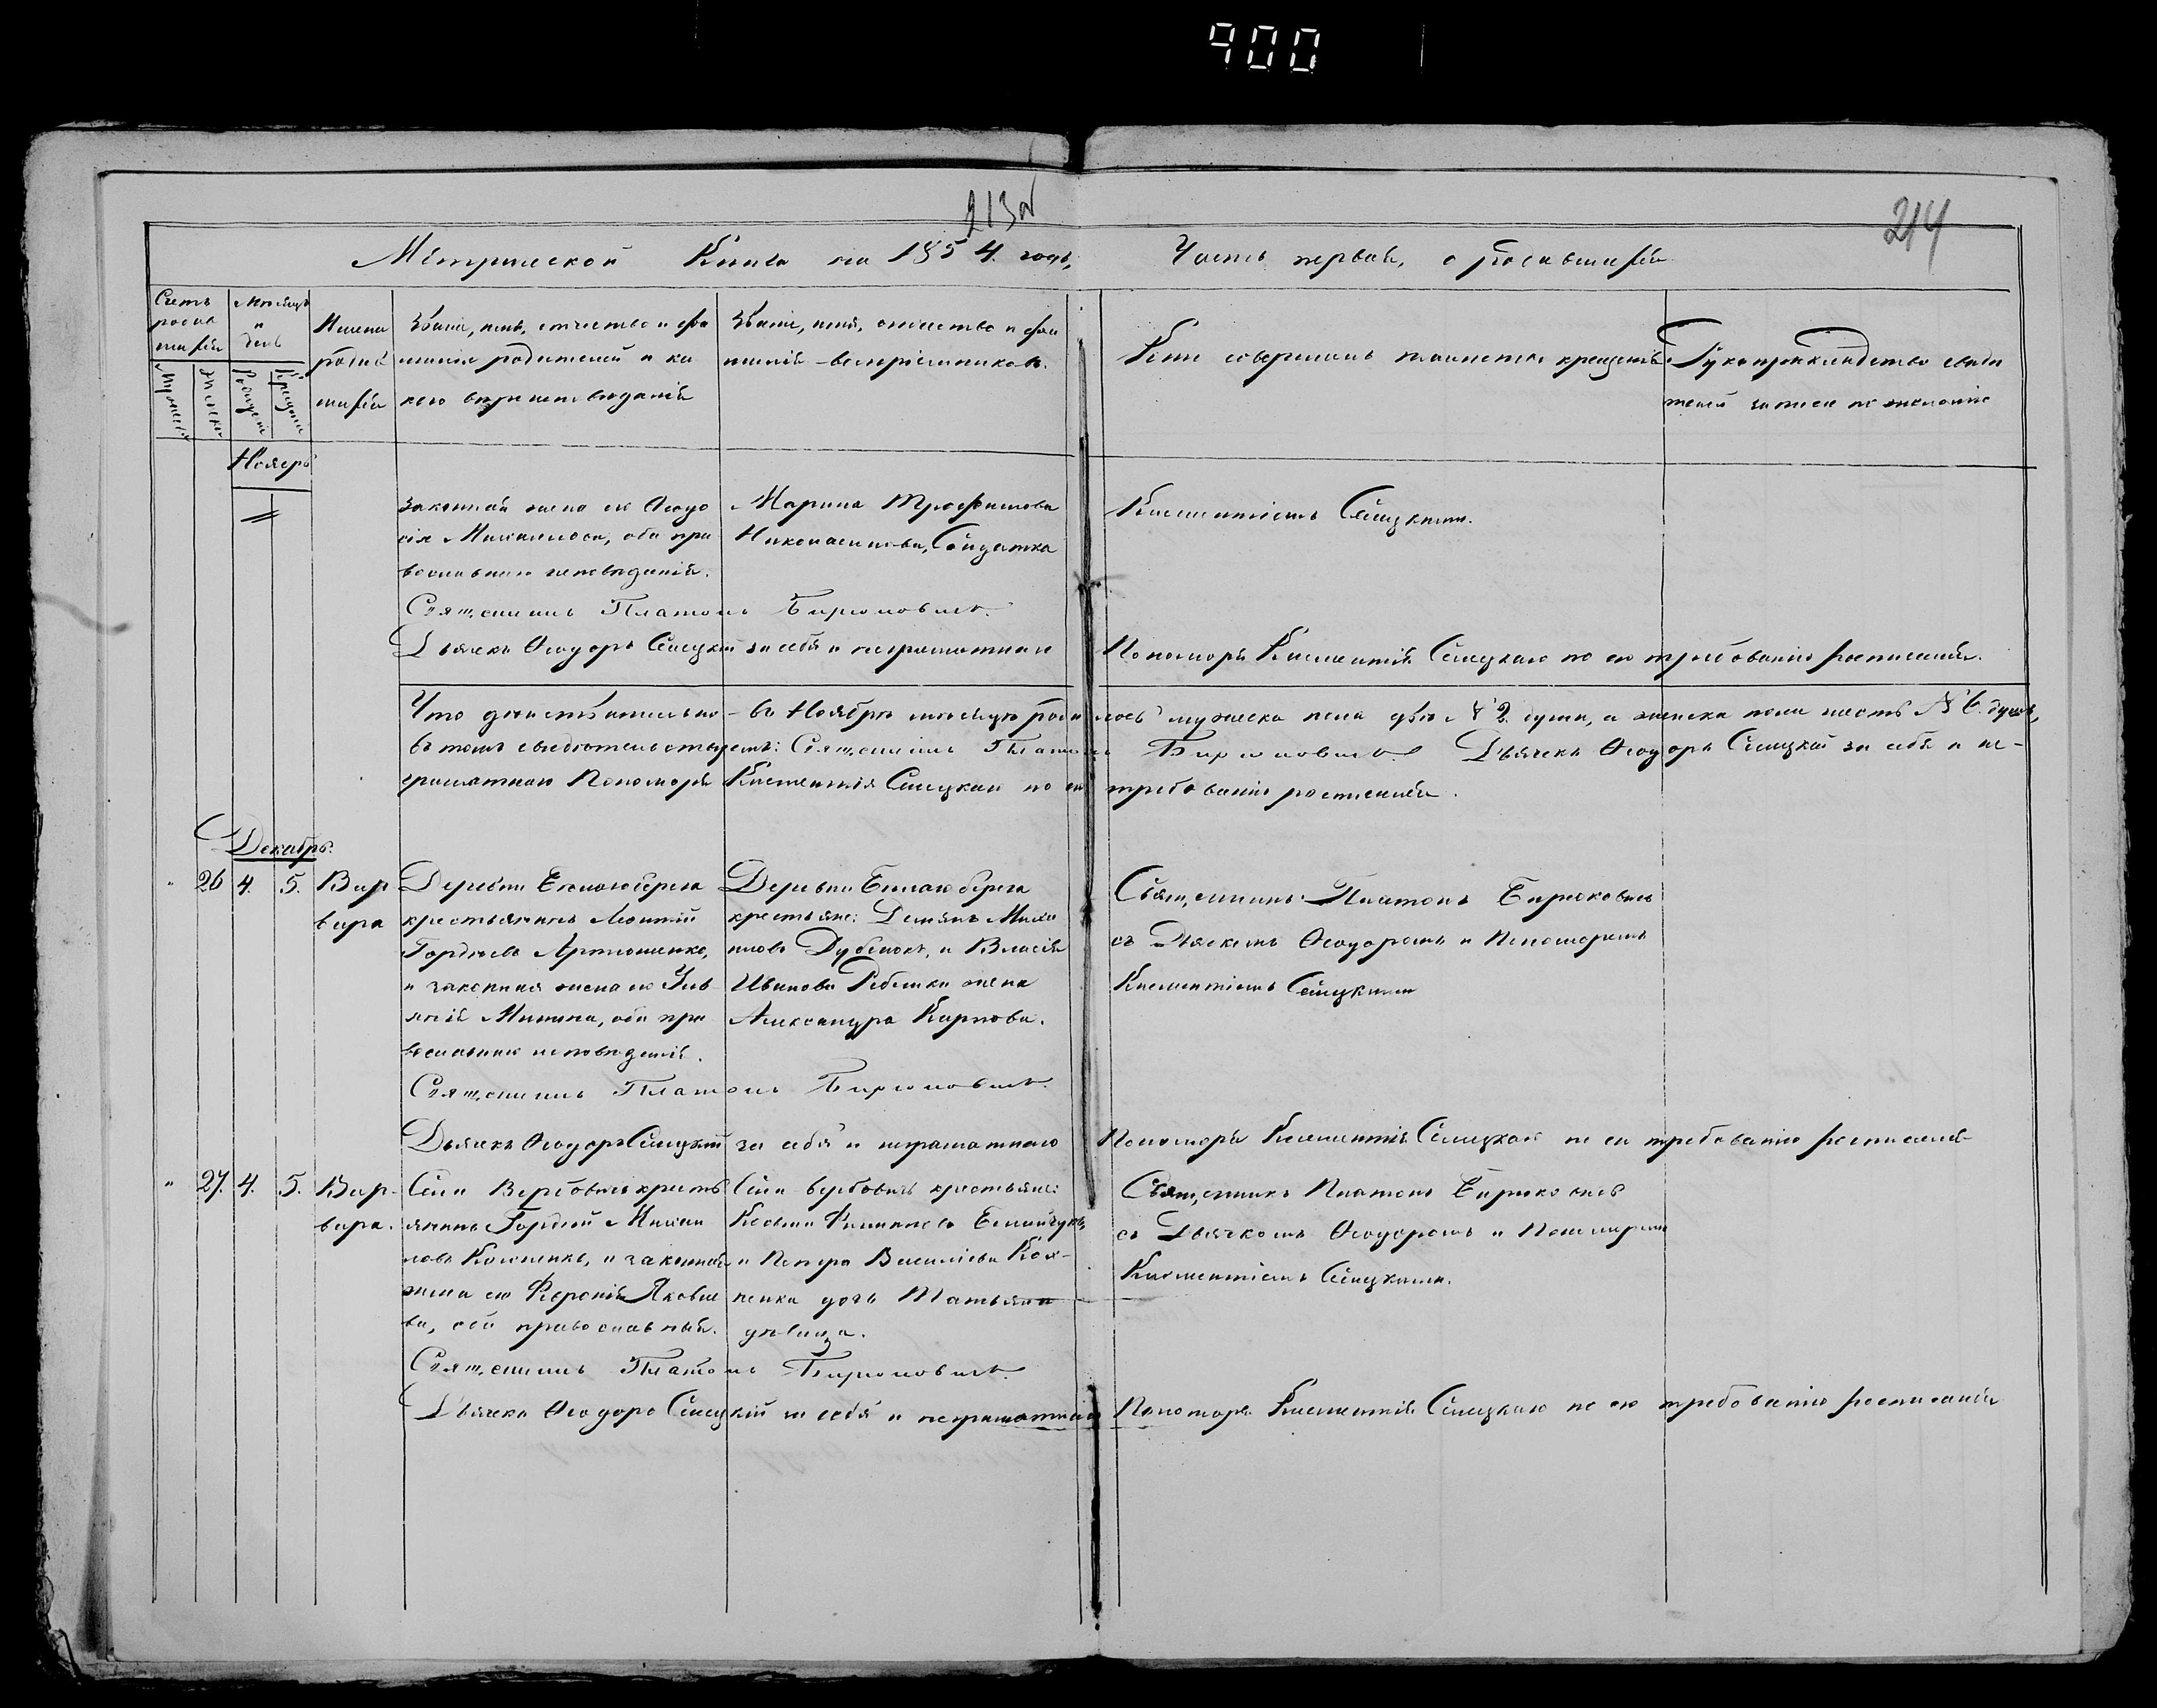 900
213 об
214
Метрической Книги на 1854. годъ,
Часть первая, о родившихся
Счетъ родив шихся
Мѣсяцъ и день
Имена родив шихся
Званіе, имя, отчество и фа милія родителей и ка кого вѣроисповѣданія
Званіе, имя, отчество и фа милія воспріемниковъ.
Кто совершалъ таинство крещенія
Рукоприкладство свидѣ телей записи по желанію
Мужеска
Женска
Рожденія
Крещенія
Ноябрь
законная жена его Ѳеодо
сія Михаилова, оба пра
вославнаго исповѣданія.
Марина Трофимова
Солдатка
Климентіемъ Сѣлецкимъ.
Священникъ Платонъ Бирюковичъ.
Дьячекъ Ѳеодоръ Сѣлецкій за себя и неграмотнаго Пономаря Климентія Сѣлецкаго по его требованію росписался.
Что дѣйствительно въ Ноябрѣ мѣсяцѣ родилось мужеска пола двѣ № 2. души, а женска пола шесть № 6. душъ,
въ томъ свидѣтельствуемъ: Священникъ Платонъ Бирюковичъ Дьячекъ Ѳеодоръ Сѣлецкій за себя и не-
грамотнаго Пономаря Климентія Сѣлецкаго по его требованію росписался.
Декабрь.
" 26 4. 5. Вар
вара
Деревни Бѣлоаоберега
крестьянинъ Леонтій
Гордѣевъ Артюшенко,
и законная жена его Уль
янія Минина, оба пра
вославнаго исповѣданія.
Деревни Бѣлаоберега
крестьяне: Демянъ Михаи
ловъ Дубенокъ, и Власія
Иванова Ребенка жена
Александра Карпова.
Священникъ Платонъ Бирюковичъ
съ Дьячкомъ Ѳеодоромъ и Пономаремъ
Климентіемъ Сѣлецкими
Священникъ Платонъ Бирюковичъ.
Дьячекъ Ѳеодоръ Сѣлецкій за себя и неграмотнаго Пономаря Климентія Сѣлецкаго по его требованію росписался
" 27. 4. 5. Вар-
вара.
Села Вербовичъ кресть
янинъ Гордѣй Михаи
ловъ и законная
жена его Яковле
ва, оба православныя.
Села Вербовичъ крестьяне:
Косьма Филиповъ
и Петра Василіева Кох-
ненка дочь Татьяна
дѣвица.
Священникъ Платонъ Бирюковичъ
съ Дьячкомъ Ѳеодоромъ и Пономаремъ
Климентіемъ Сѣлецкими.
Священникъ Платонъ Бирюковичъ.
Дьячекъ Ѳеодоръ Сѣлецкій за себя и неграмотнаго Пономаря Климентія Сѣлецкаго по его требованію росписался